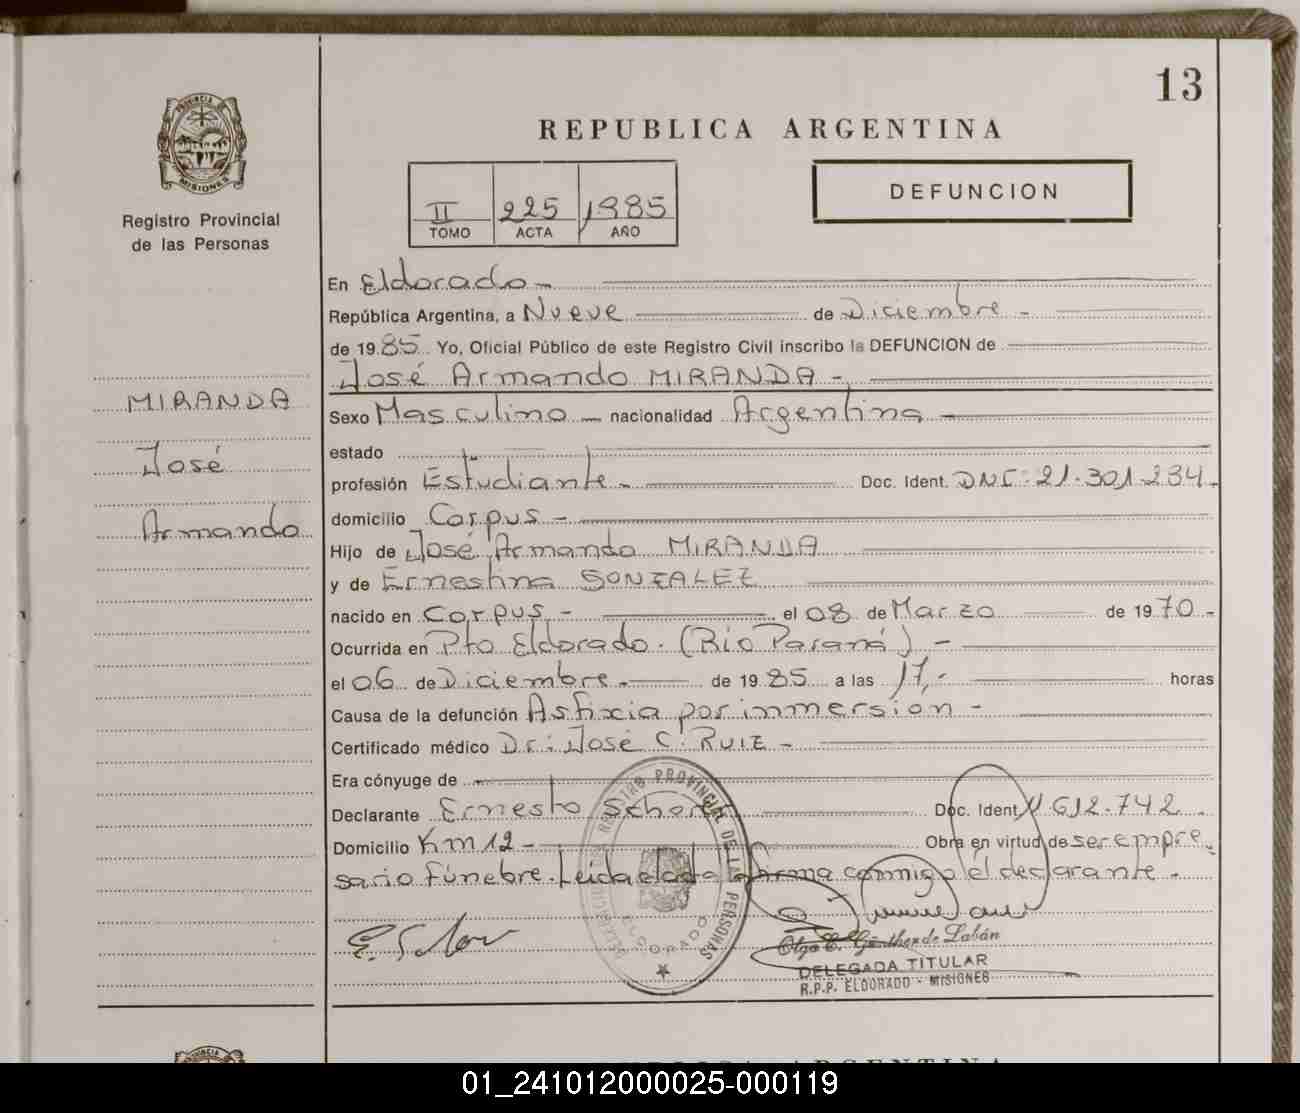 13
PROVINCIA DE
MISIONES
Registro Provincial
de las Personas
REPUBLICA ARGENTINA
II 225 1985
TOMO ACTA AÑO
DEFUNCION
En Eldorado
República Argentina, a Nueve de Diciembre
de 1985 Yo, Oficial Público de este Registro Civil inscribo la DEFUNCION de
José Armando MIRANDA
MIRANDA
José
Armando
Sexo Masculino nacionalidad Argentina
estado
profesión Estudiante Doc. Ident. DNI: 21.301.234
domicilio Corpus
Hijo de José Armando MIRANDA
y de Ernestina GONZALEZ
nacido en Corpus el 08 de Marzo de 1970
Ocurrida en Pto Eldorado. (Río Paraná)
el 06 de Diciembre de 1985 a las 17 horas
Causa de la defunción Asfixia por inmersion
Certificado médico Dr: José C. RUIZ
Era cónyuge de
Declarante Ernesto Doc. Ident. 612.742
Domicilio Km 12 Obra en virtud de ser empre
sario fúnebre. Leida el acta la firma conmigo el declarante.
REGISTRO PROVINCIAL DE LAS PERSONAS
ELDORADO
Olga E. Günther de Labán
DELEGADA TITULAR
R.P.P. ELDORADO - MISIONES
PROVINCIA
REPUBLICA ARGENTINA
01_241012000025-000119